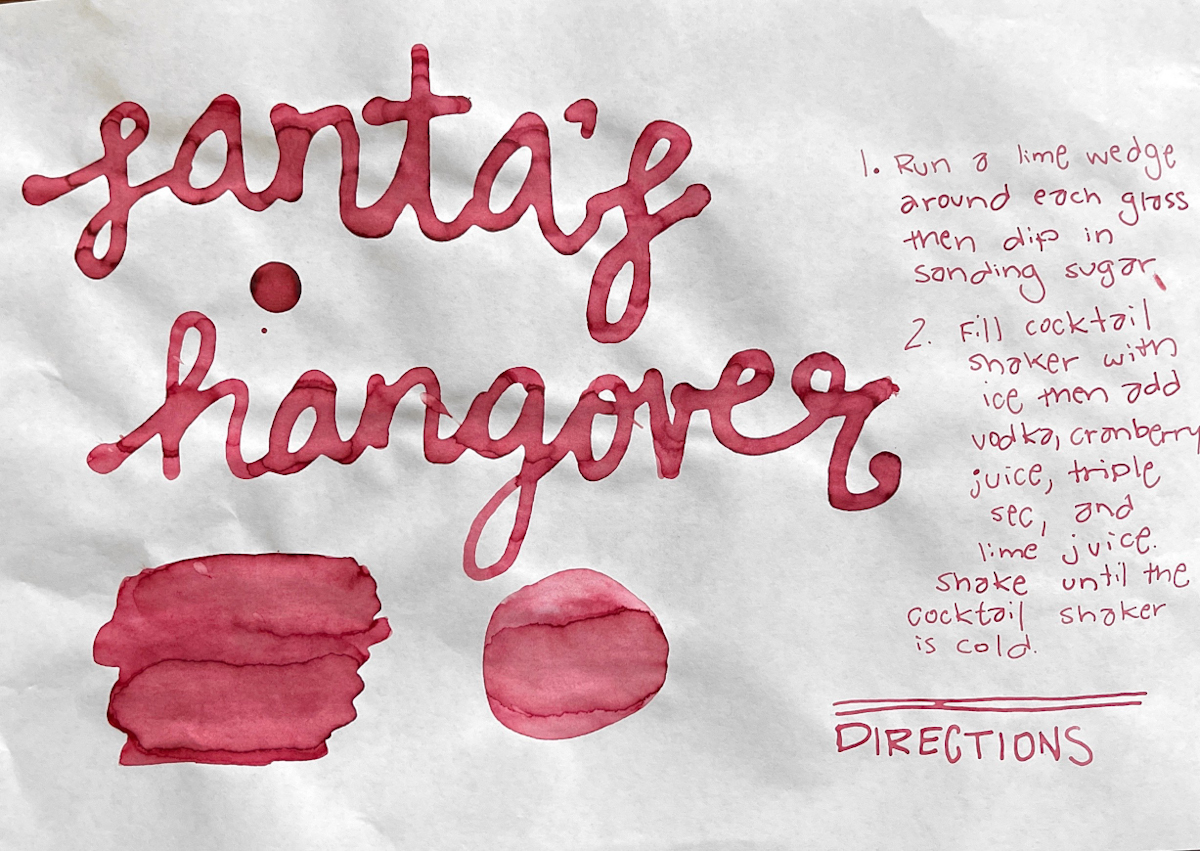 santa's
hangover
1. Run a lime wedge
around each glass
then dip in
sanding sugar.
2. Fill cocktail
shaker with
ice then add
vodka, cranberry
juice, triple
sec, and
lime juice.
Shake until the
cocktail shaker
is cold.
DIRECTIONS